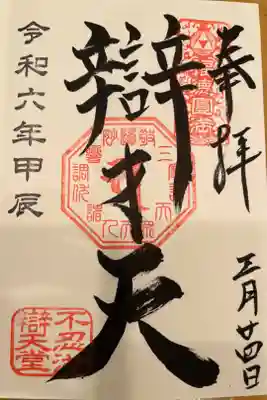 奉拝
月廿四日
辯才天
令和六年甲辰
不忍池
辯天堂